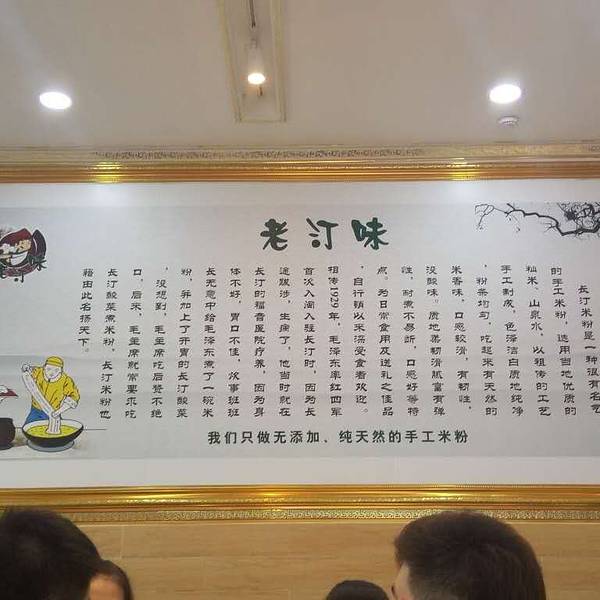 老汀味
长汀米粉是一种很有名气
的手工米粉，选用当地优质的
籼米、山泉水，以祖传的工艺
手工制成，色泽洁白质地纯净
，粉条均匀，吃起来有天然的
米香味，口感较滑，有韧性，
没酸味。质地柔韧滑肌富有弹
性，耐煮不易断，口感好等特
点。为日常食用及送礼之佳品
，自行销以来深受食者欢迎。
相传1929年，毛泽东率红四军
首次入闽入驻长汀时，因为长
途跋涉，生病了，他当时就在
长汀的福音医院疗养，因为身
体不好，胃口不佳，炊事班班
长无意中给毛泽东煮了一碗米
粉，并加上了开胃的长汀酸菜
，没想到，毛主席吃后赞不绝
口，后来，毛主席就常要求吃
长汀酸菜煮米粉，长汀米粉也
籍由此名扬天下。
我们只做无添加、纯天然的手工米粉